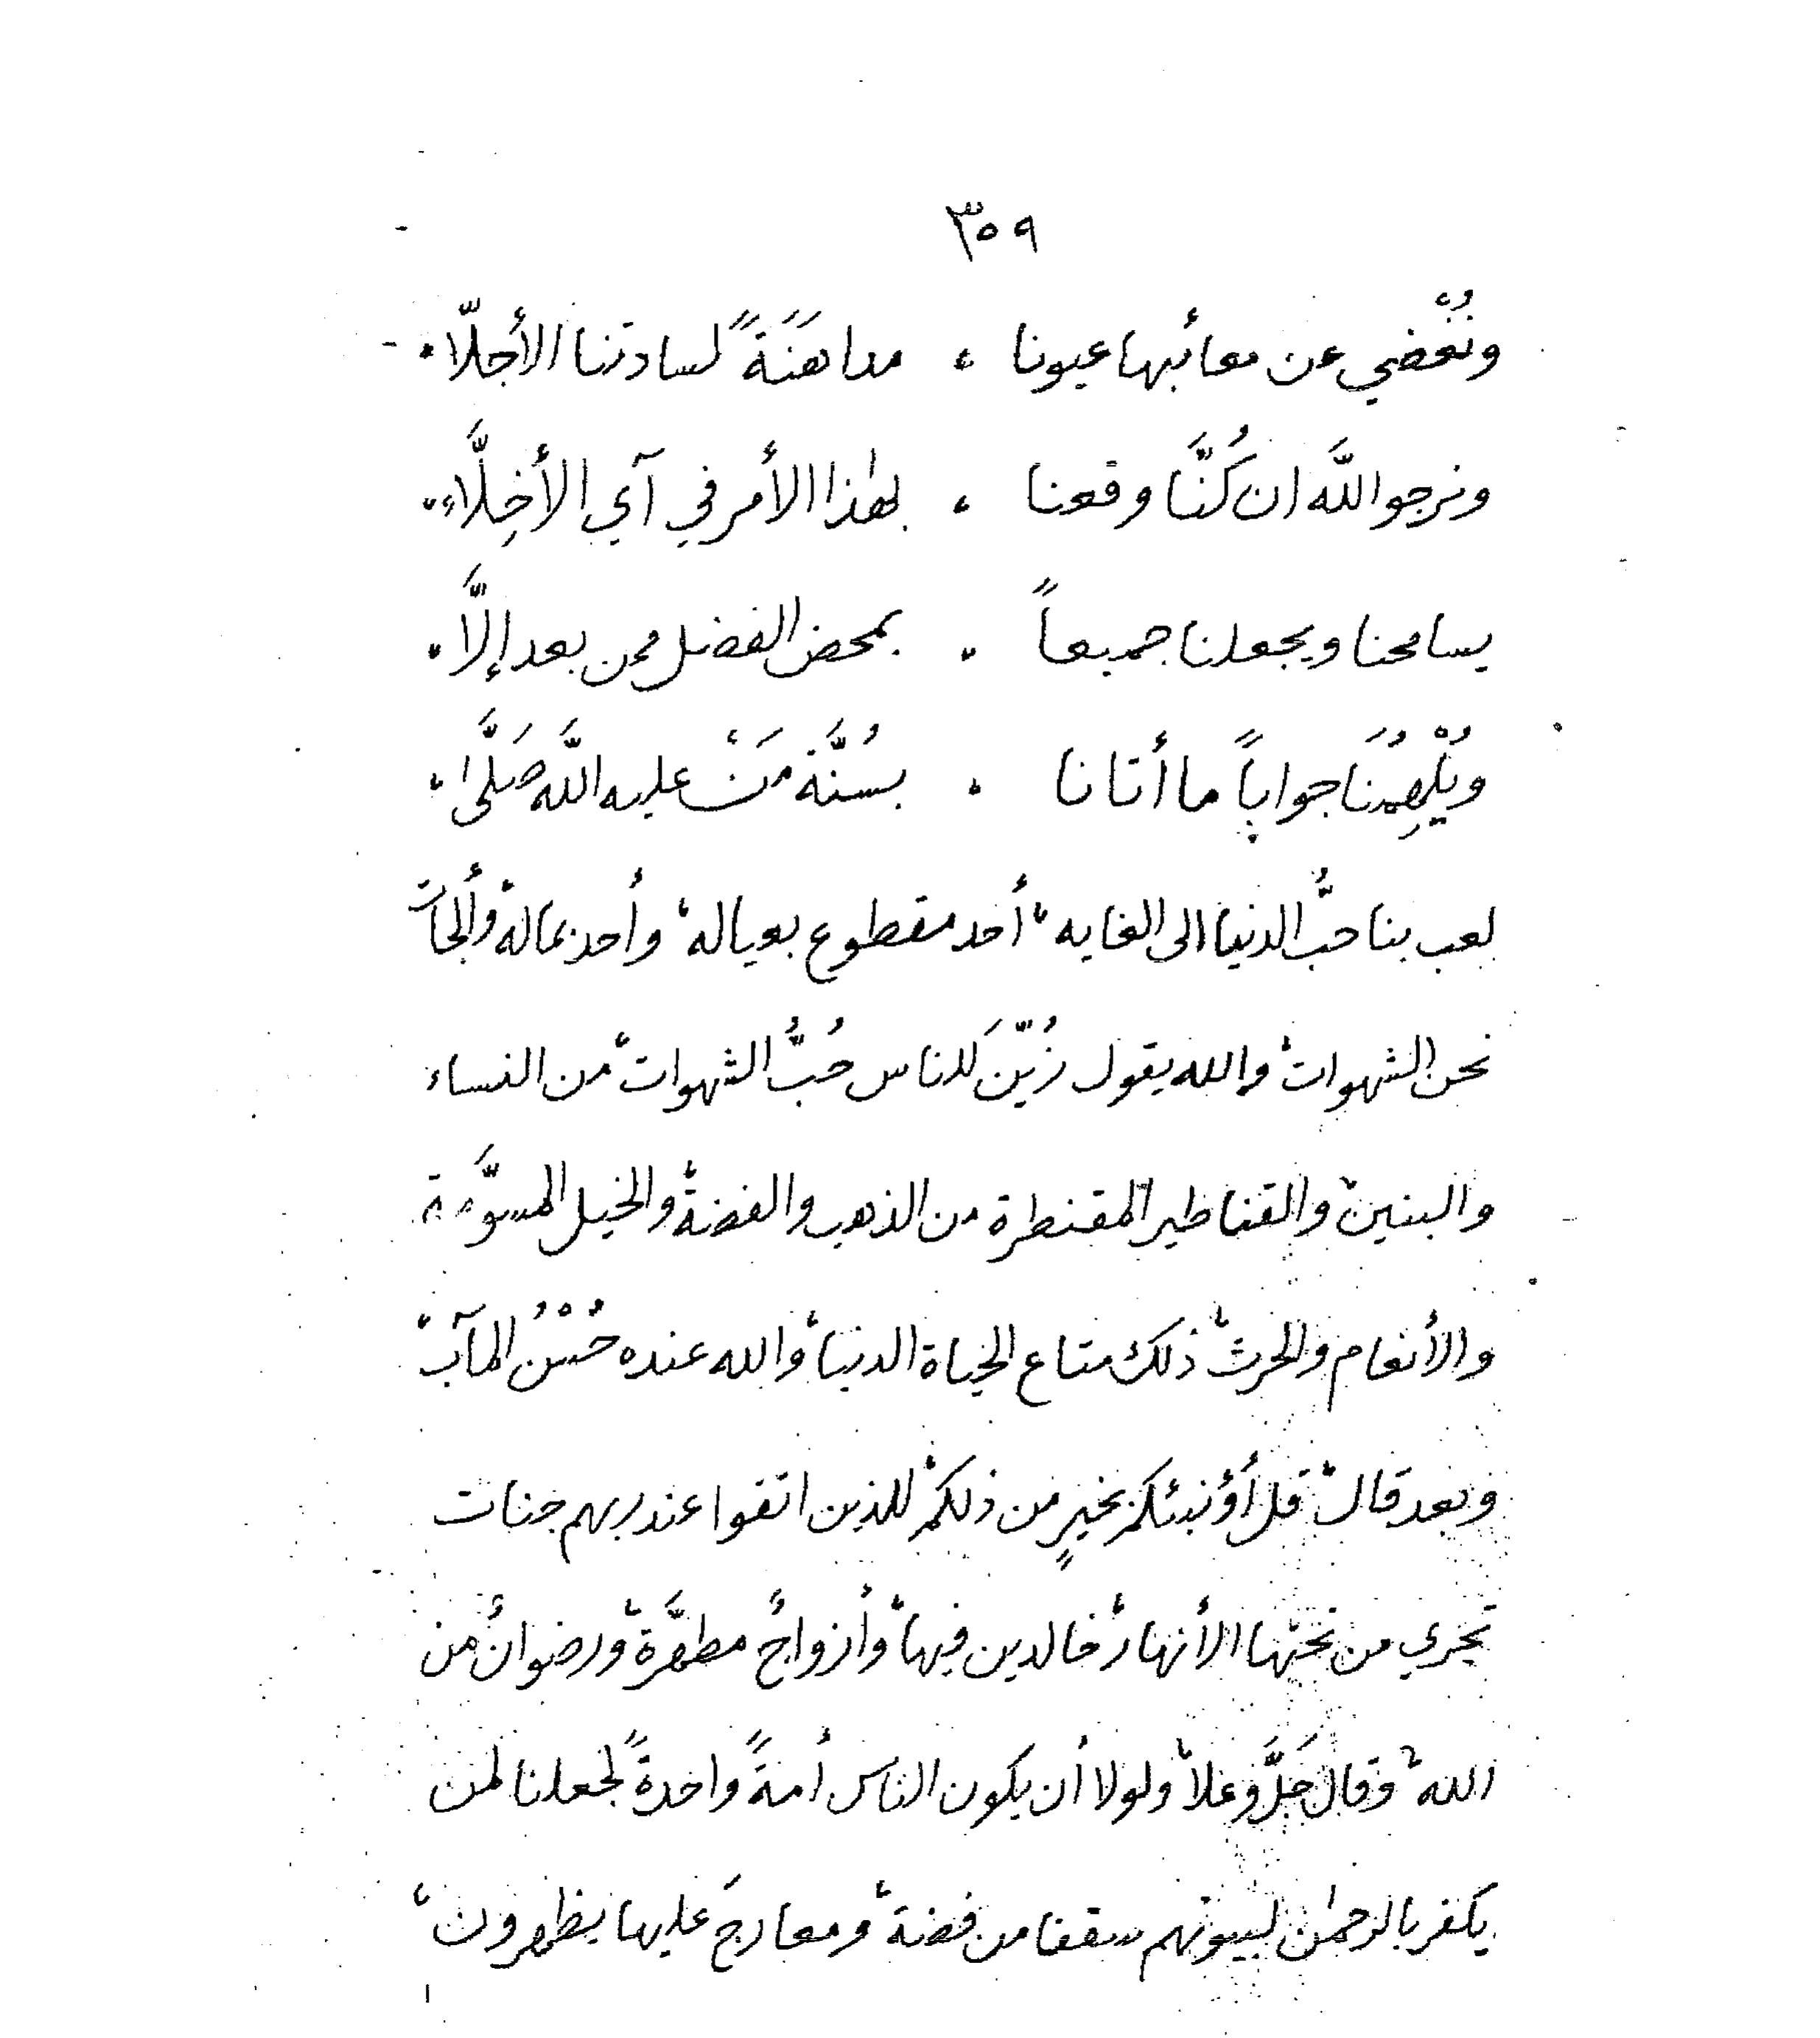 ٣٥٩
ونُغْضي عن معائبها عيونا ، مداهَنَةً لسادتنا الأجلّا ،
ونرجو اللَّه ان كُنَّا وقعنا ، بهٰذا الأمر في آي الأخِلَّاء ،
يسامحنا ويجعلنا جميعاً ، بمحض الفضل ممن بعد إلَّا ،
ويُلْهِمُنَا جواباً ما أتانا ، بسُنَّة مَنْ عليه اللَّه صَلَّى ،
لعب بنا حبُّ الدنيا الى الغايه ، أحد مقطوع بعياله ، وأحد بماله ، وألجأت
نحن الشهوات ، والله يقول زُيّنَ للناس حُبُّ الشهوات ، من النساء
والبنين ، والقناطير المقنطرة من الذهب والفضة ، والخيل المسوَّمة
والأنعام والحرث ، ذلك متاع الحياة الدنيا ، والله عنده حُسْنُ المآب ،
وبعد قال ، قل أؤنبئكم بخيرٍ من ذلكم ، للذين اتقوا عند ربهم جنات
تجري من تحتها الأنهار ، خالدين فيها ، وأزواجٌ مطهَّرة ، ورضوانٌ من
الله ، وقال جَلَّ وعلا ، ولولا أن يكون الناس أمةً واحدةً لجعلنا لمن
يكفر بالرحمٰن لبيوتهم سقفا من فضة ، ومعارجَ عليها يظهرون ،